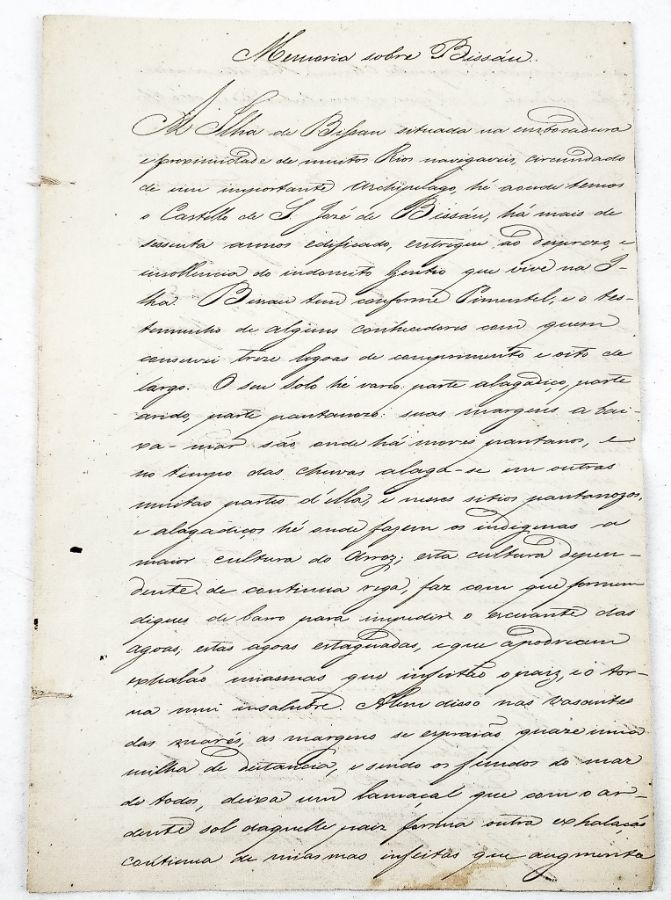 Memoria sobre Bissáu.
A Ilha de Bissau situada na embocadura
e proximidade de muitos Rios navegaveis, circundado
de um importante Archipelago, hé aonde temos
o Castello de S. José de Bissáu, há mais de
sessenta annos edificado, entregue ao despreso, e
insollencia do indomito Gentio que vive na I-
lha. Bissau tem conforme Pimentel, e o tes-
temunho de alguns conhecedores com quem
conversei treze legoas de comprimento e oito de
largo. O seu solo hé vario: parte alagadiço, parte
arido, parte pantanozo: suas margens a bai-
xa-mar são onde há mores pantanos, e
no tempo das chuvas alaga-se em outras
muitas partes d'ella, e nesses sitios pantanozos,
e alagadiços hé onde fazem os indigenas a
maior cultura do Arroz; esta cultura depen-
dente de continua rega, faz com que formem
diques de barro para impedir o escoante das
agoas, estas agoas estagnadas, e que apodrecem
exhalão miasmas que infestão o paiz, e o tor-
na mui insalubre. Alem disso nas vasantes
das marés, as margens se espraião quaze uma
milha de distancia, e sendo os fundos do mar
de lodos, deixa um lamaçal que com o ar-
dente sol daquelle paiz forma outra exhalação
continua de miasmas infectas que augmenta